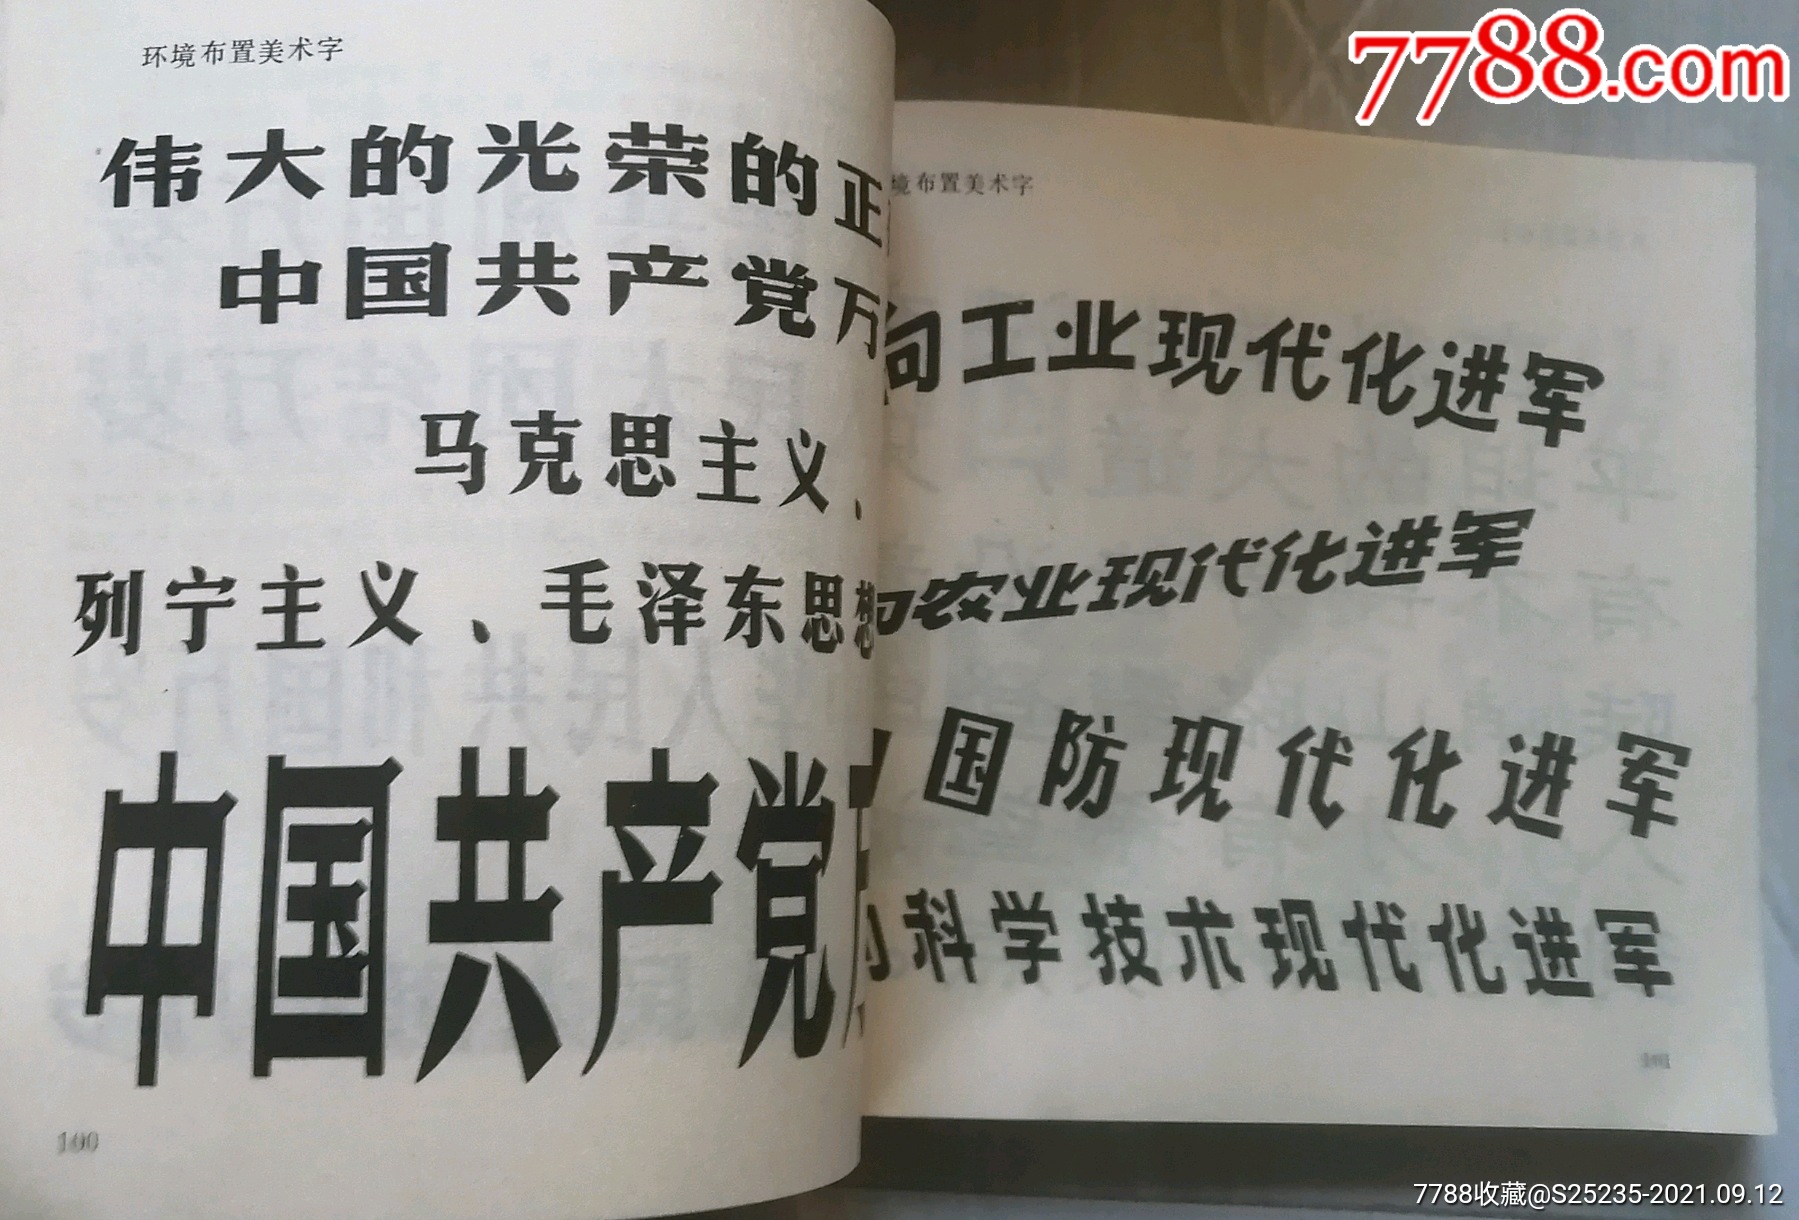 环境布置美术字
伟大的光荣的正
中国共产党万
马克思主义、
列宁主义、毛泽东思想
中国共产党
100
境布置美术字
向工业现代化进军
向农业现代化进军
国防现代化进军
向科学技术现代化进军
101
7788.com
7788收藏@S25235-2021.09.12